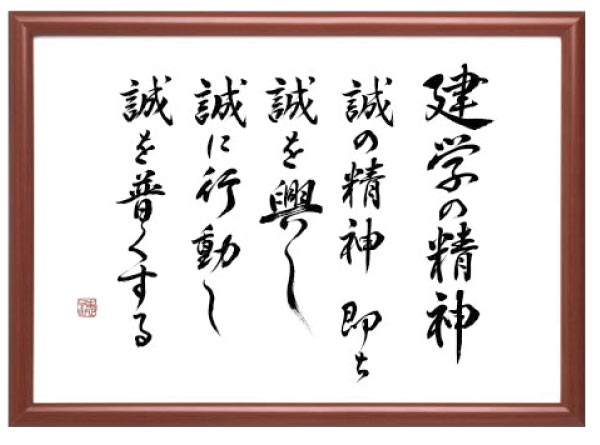 建学の精神
誠の精神 即ち
誠を興し
誠に行動し
誠を普くする